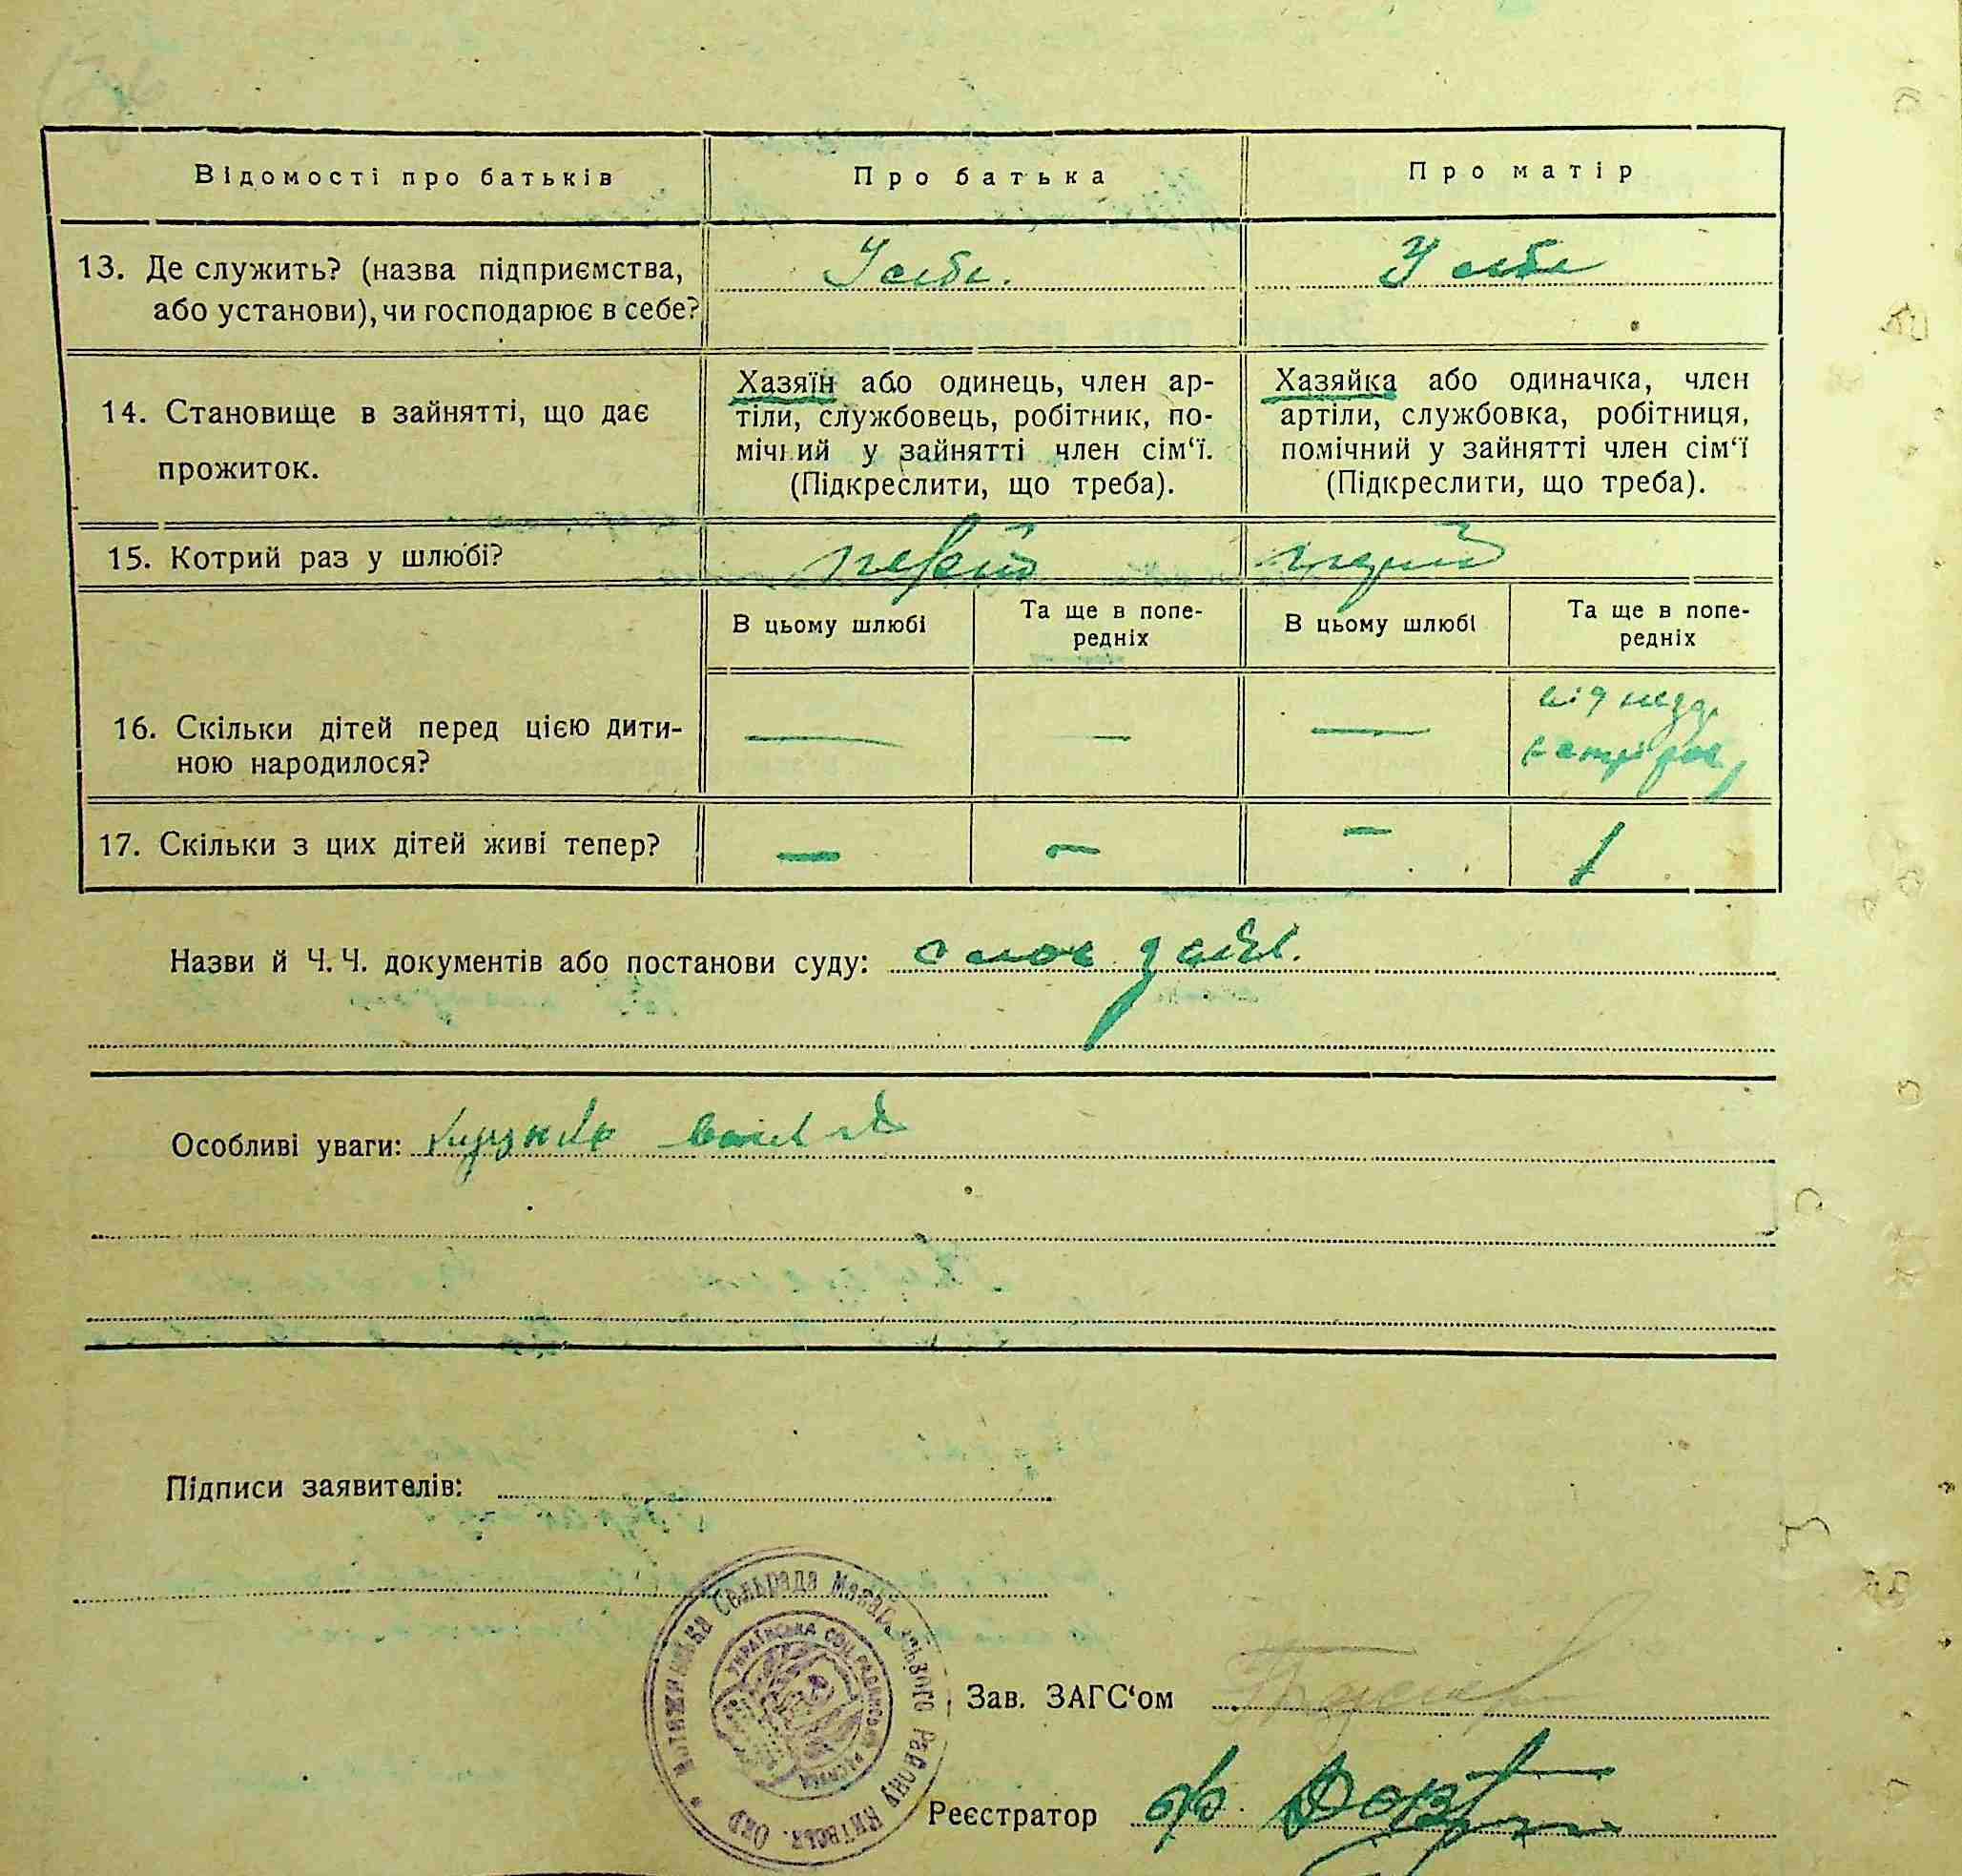 Відомості про батьків
Про батька
Про матір
13. Де служить? (назва підприємства,
або установи), чи господарює в себе?
У себе.
У себе
14. Становище в зайнятті, що дає
прожиток.
Хазяїн або одинець, член ар-
тіли, службовець, робітник, по-
мічний у зайнятті член сім‘ї.
(Підкреслити, що треба).
Хазяйка або одиначка, член
артіли, службовка, робітниця,
помічний у зайнятті член сім‘ї
(Підкреслити, що треба).
15. Котрий раз у шлюбі?
первий
первий
В цьому шлюбі
Та ще в попе-
редніх
В цьому шлюбі
Та ще в попе-
редніх
16. Скільки дітей перед цією дити-
ною народилося?
—
—
—
17. Скільки з цих дітей живі тепер?
—
—
—
1
Назви й Ч. Ч. документів або постанови суду:
Особливі уваги:
Підписи заявителів:
Сельрада Макарівського Району Київськ. Окр
УКРАЇНСЬКА СОЦ. РАДЯНСЬКА
Зав. ЗАГС‘ом
Реєстратор